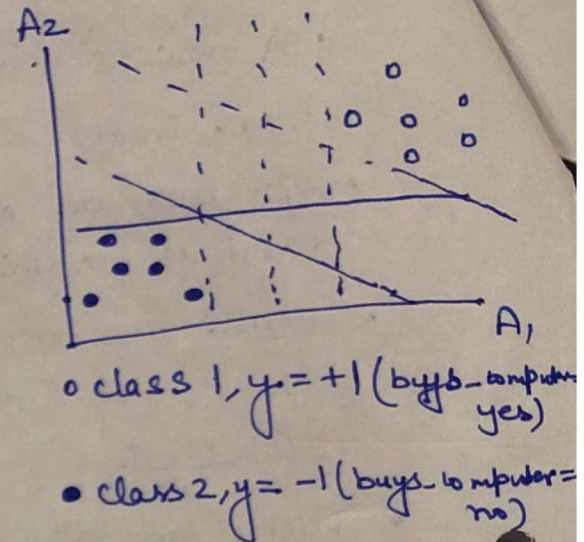 A2
A1
o class 1, y = +1 (buys_computer=
yes)
● class 2, y = -1 (buys_computer=
no)